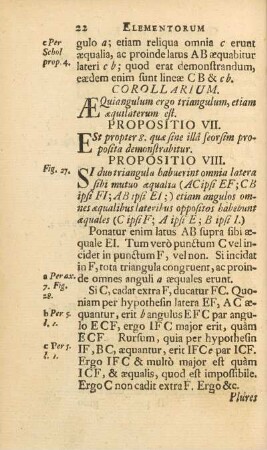 22 ELEMENTORUM
c Per Schol prop. 4.
gulo a; etiam reliqua omnia c erunt
æqualia, ac proinde latus AB æquabitur
lateri c b; quod erat demonstrandum,
eædem enim sunt lineæ CB & c b.
COROLLARIUM.
ÆQuiangulum ergo triangulum, etiam
æquilaterum est.
PROPOSITIO VII.
ESt propter 8. quæ sine illâ seorsim pro-
posita demonstrabitur.
PROPOSITIO VIII.
Fig. 27.
SI duo triangula habuerint omnia latera
sibi mutuo æqualia (AC ipsi EF; CB
ipsi FI; AB ipsi EI;) etiam angulos om-
nes æqualibus lateribus oppositos habebunt
æquales (C ipsi F; A ipsi E; B ipsi I.)
Ponatur enim latus AB supra sibi æ-
quale EI. Tum verò punctum C vel in-
cider in punctum F, vel non. Si incidat
in F, tota triangula congruent, ac proin-
de omnes anguli a æquales erunt.
a Per ax. 7. Fig. 28.
Si C, cadat extra F, ducatur FC. Quo-
niam per hypothesin latera EF, AC æ-
quantur, erit b angulus EFC par angu-
lo ECF, ergo IFC major erit, quàm
ECF Rursum, quia per hypothesin
b Per 5. l. 1.
IF, BC, æquantur, erit IFC c par ICF.
c Per 5. l. 1.
Ergo IFC multò major est quàm
ICF, & æqualis, quod est impossibile.
Ergo C non cadit extra F. Ergo &c.
Plures